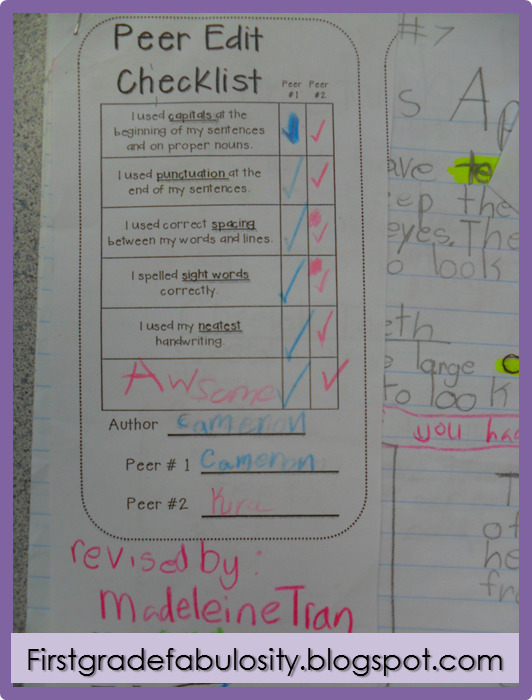 Peer Edit
Checklist
Peer #1
Peer #2
I used capitals at the
beginning of my sentences
and on proper nouns.
I used punctuation at the
end of my sentences.
I used correct spacing
between my words and lines.
I spelled sight words
correctly.
I used my neatest
handwriting.
Awsome
Author Cameron
Peer # 1 Cameron
Peer #2 Kira
revised by:
Madeleine Tran
#7
s Ap
ave te
eep the
eyes. The
to look
eth
large
to look
you had
T
of
he
fro
Firstgradefabulosity.blogspot.com